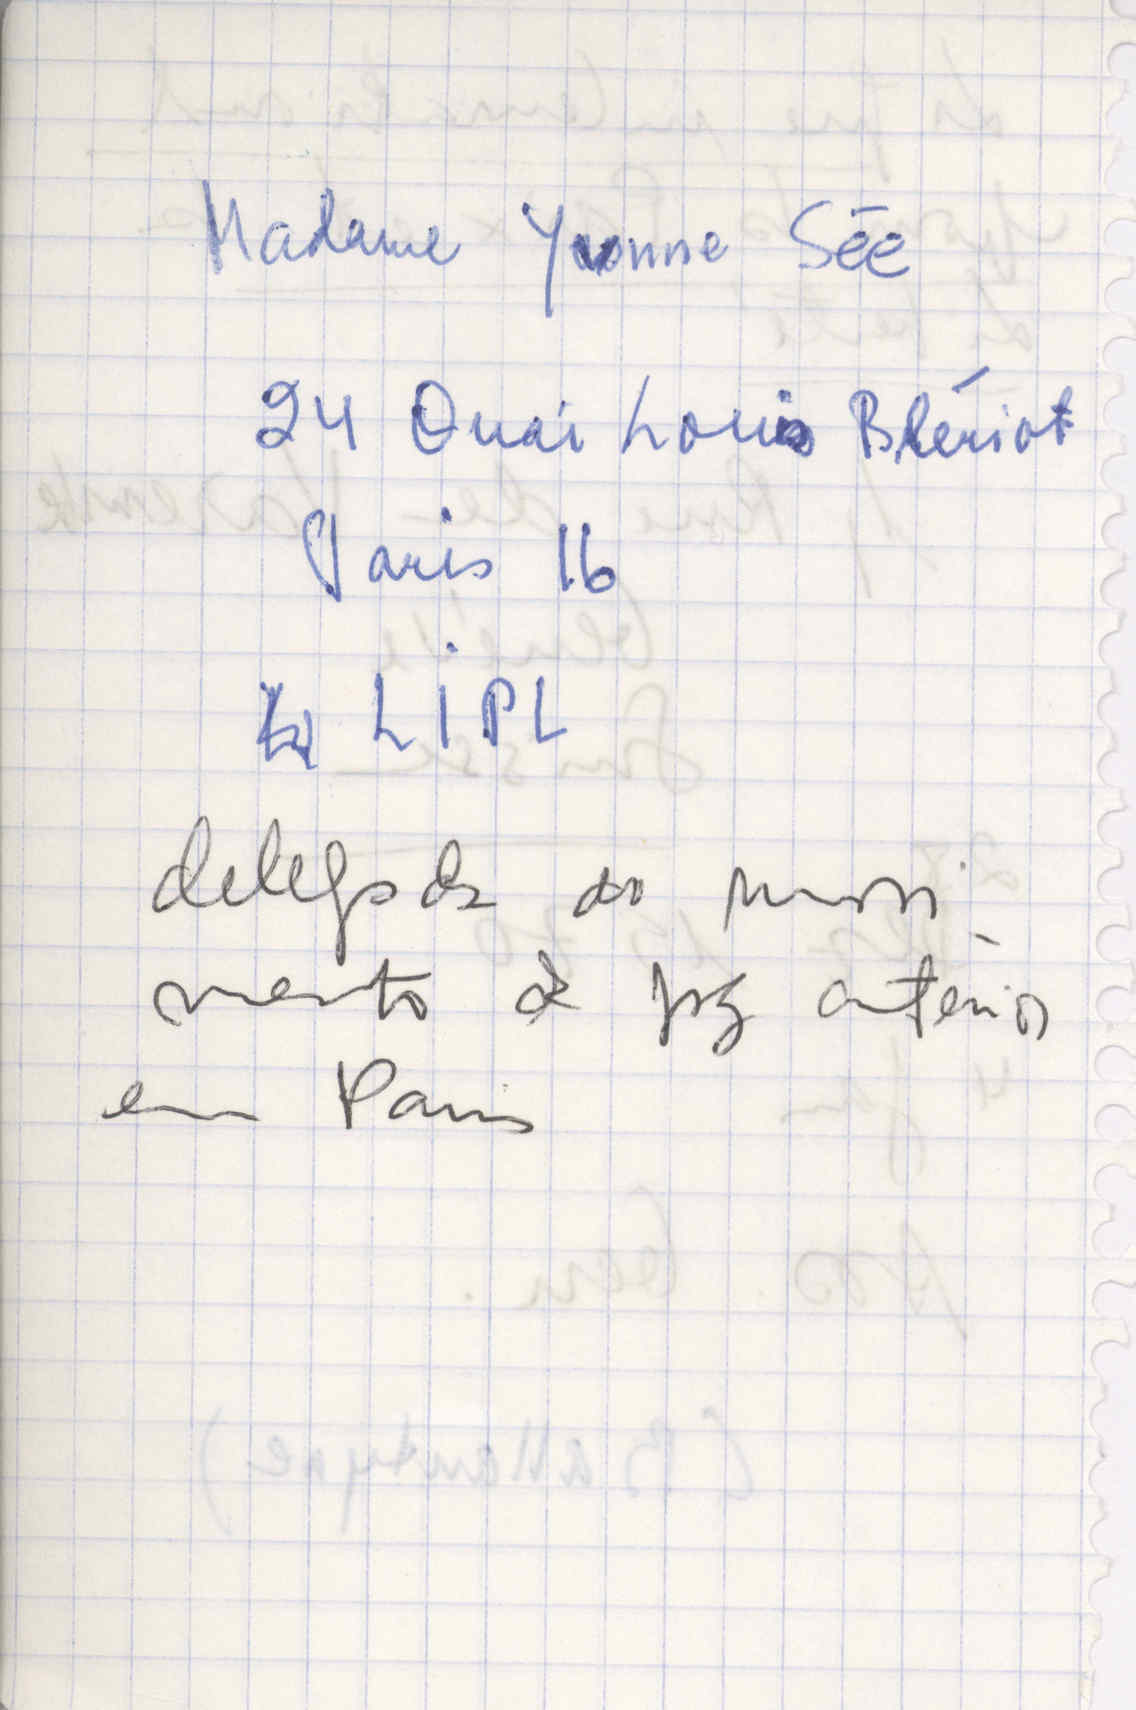 Madame Yvonne Sée
24 Quai Louis Blériot
Paris 16
LIPL
delegada do movi
mento de paz anterior
em Paris